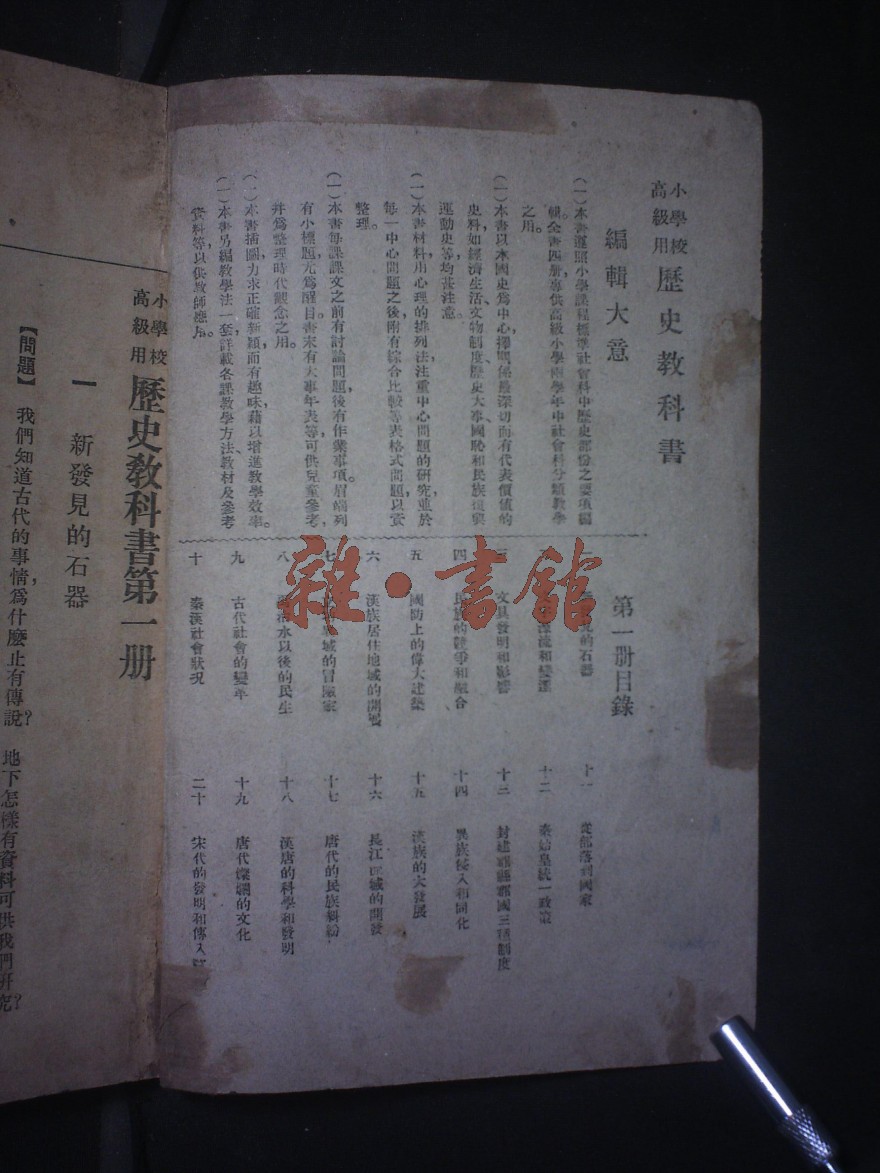 小學校高級用 歷史教科書
編輯大意
(一)本書遵照小學課程標準社會科中歷史部份之要項編
輯。全書四册,專供高級小學兩學年中社會科分類教學
之用。
(一)本書以本國史爲中心,擇關係最深切而有代表價值的
史料,如經濟生活、文物制度、歷史大事、國恥和民族復興
運動史等,均甚注意。
(一)本書材料,用心理的排列法,注重中心問題的研究;並於
每一中心問題之後,附有綜合比較等表格式問題,以資
整理。
(一)本書每課課文之前有討論問題,後有作業事項。眉端列
有小標題,尤爲醒目。書末有大事年表等,可供兒童參考,
并爲整理時代觀念之用。
(一)本書插圖,力求正確新穎而有趣味,藉以增進教學效率。
(一)本書另編教學法一套,詳載各課教學方法、教材及參考
資料等,以供教師應用。
第一册目錄
的石器
和變遷
三 文具發明和影響
四 民族的競爭和融合
五 國防上的偉大建築
六 漢族居住地域的開闢
七 域的冒險家
八 治水以後的民生
九 古代社會的變革
十 秦漢社會狀況
十一 從部落到國家
十二 秦始皇統一政策
十三 封建郡縣郡國三種制度
十四 異族侵入和同化
十五 漢族的大發展
十六 長江流域的開發
十七 唐代的民族糾紛
十八 漢唐的科學和發明
十九 唐代燦爛的文化
二十 宋代的發明和傳入
雜·書館
小學校高級用 歷史教科書第一册
一 新發見的石器
【問題】 我們知道古代的事情,爲什麼止有傳說? 地下怎樣有資料可供我們研究?